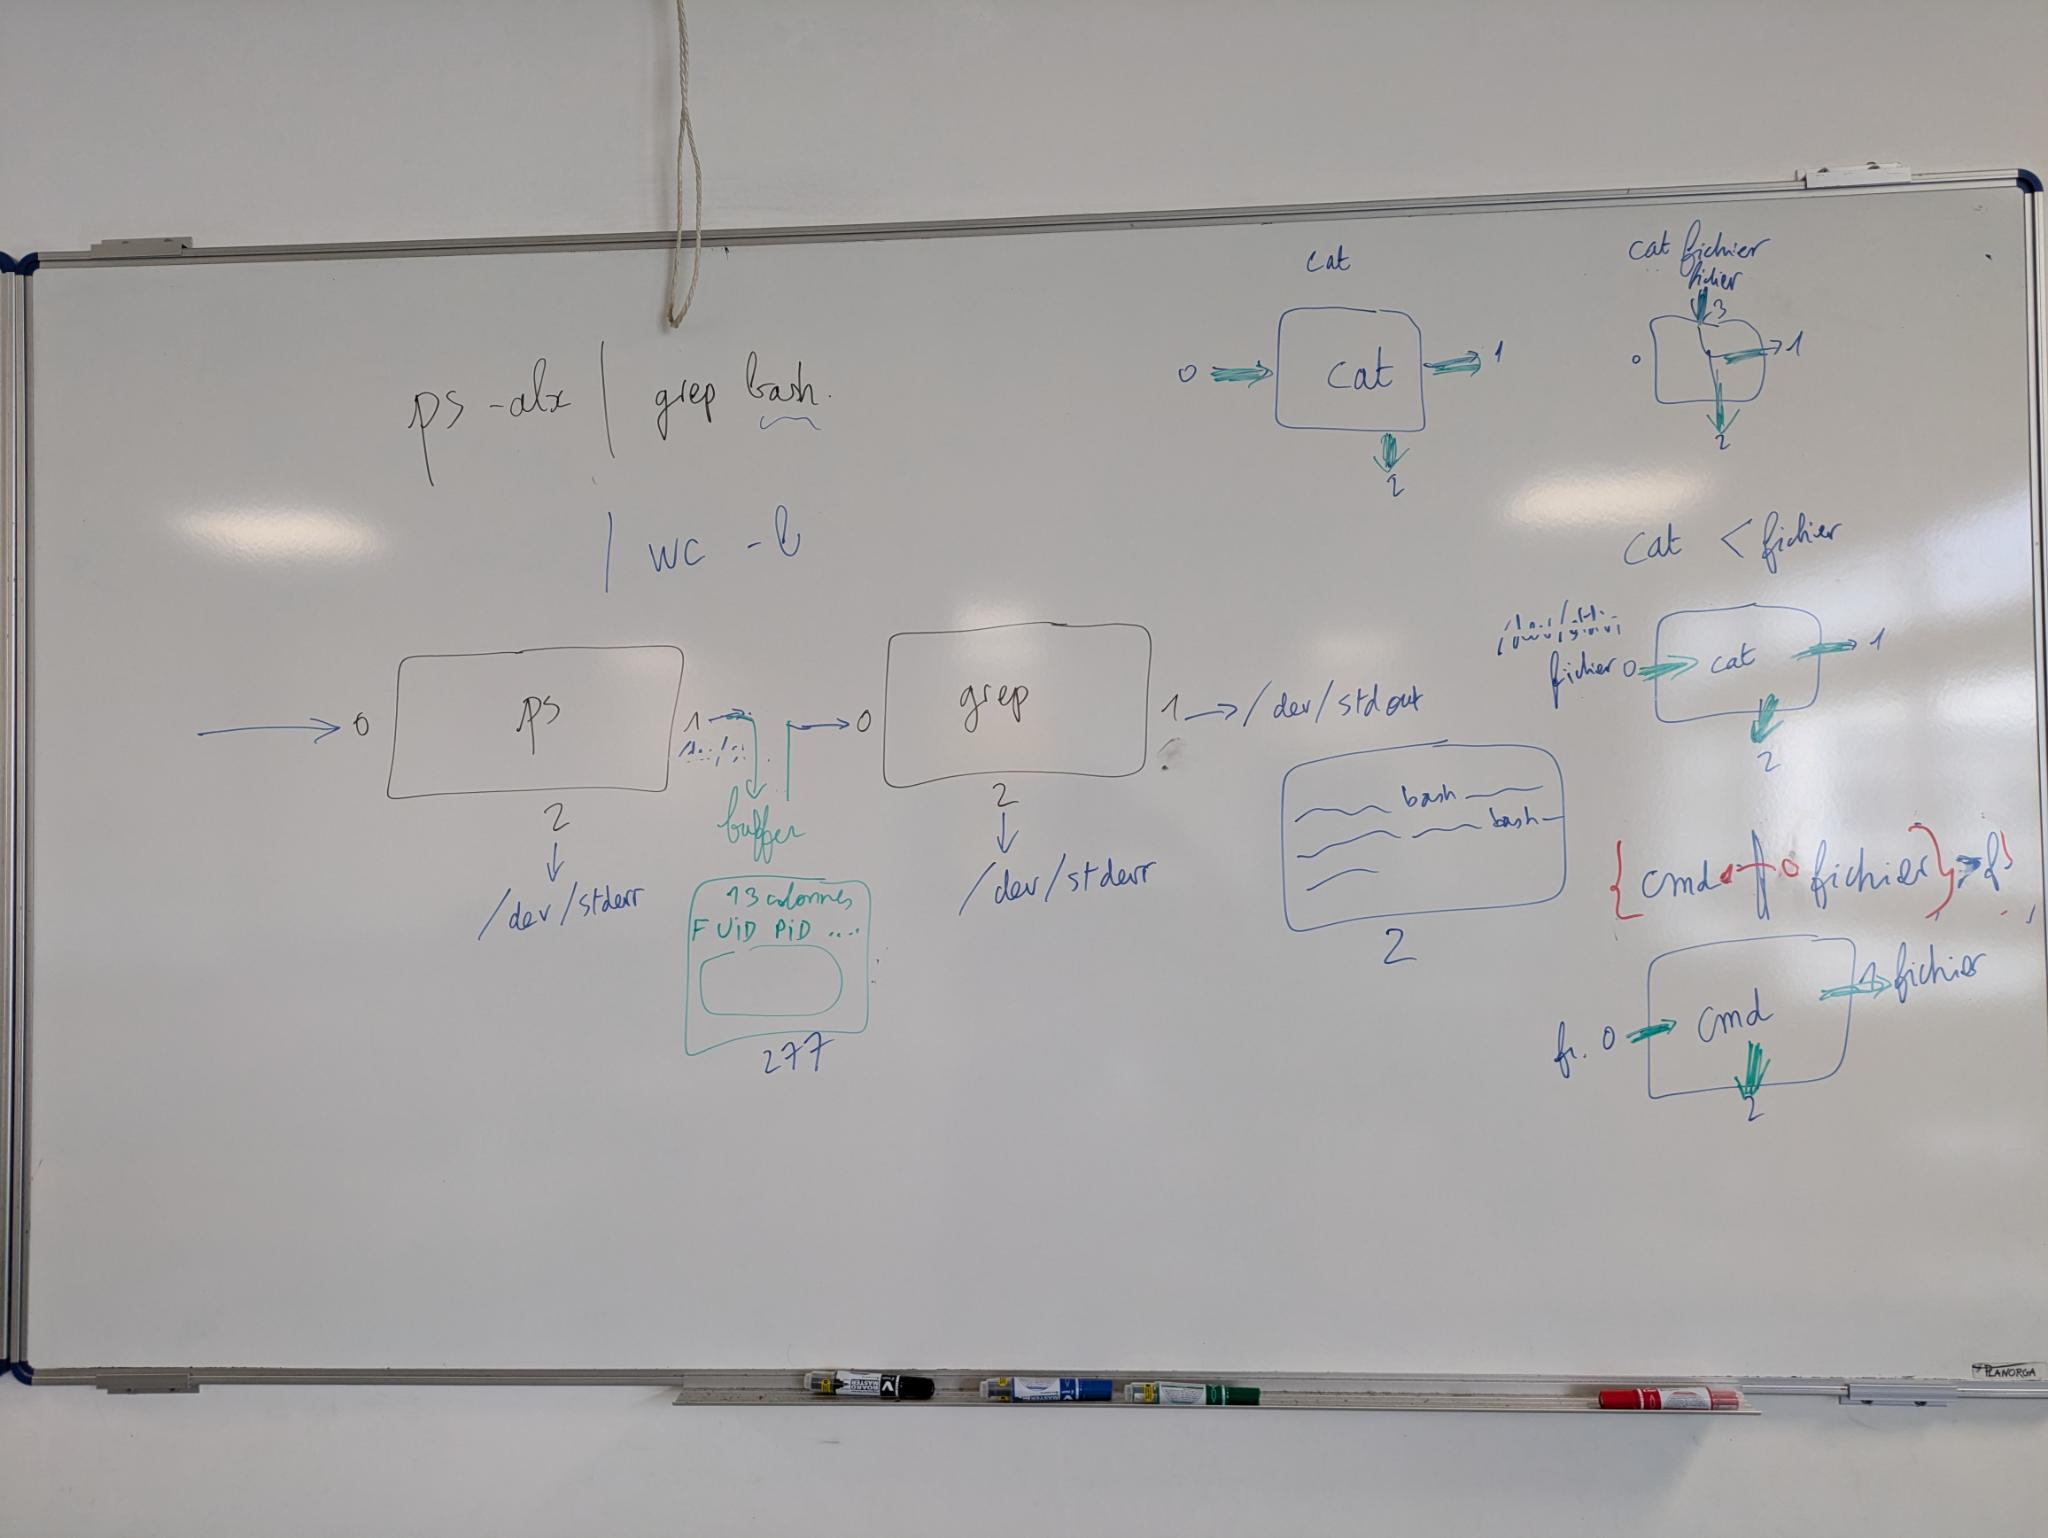 ps -alx | grep bash.
| wc -l
0 ps 1
2
/dev/stderr
buffer
13 colonnes
F UiD PiD ....
277
0 grep 1 → /dev/stdout
2
/dev/stderr
bash
bash
2
cat
0 cat 1
2
cat fichier
fichier
3
0 1
2
cat < fichier
fichier 0 cat 1
2
cmd 0 fichier
fichier
0 cmd
2
BOARD MASTER
PLANORGA